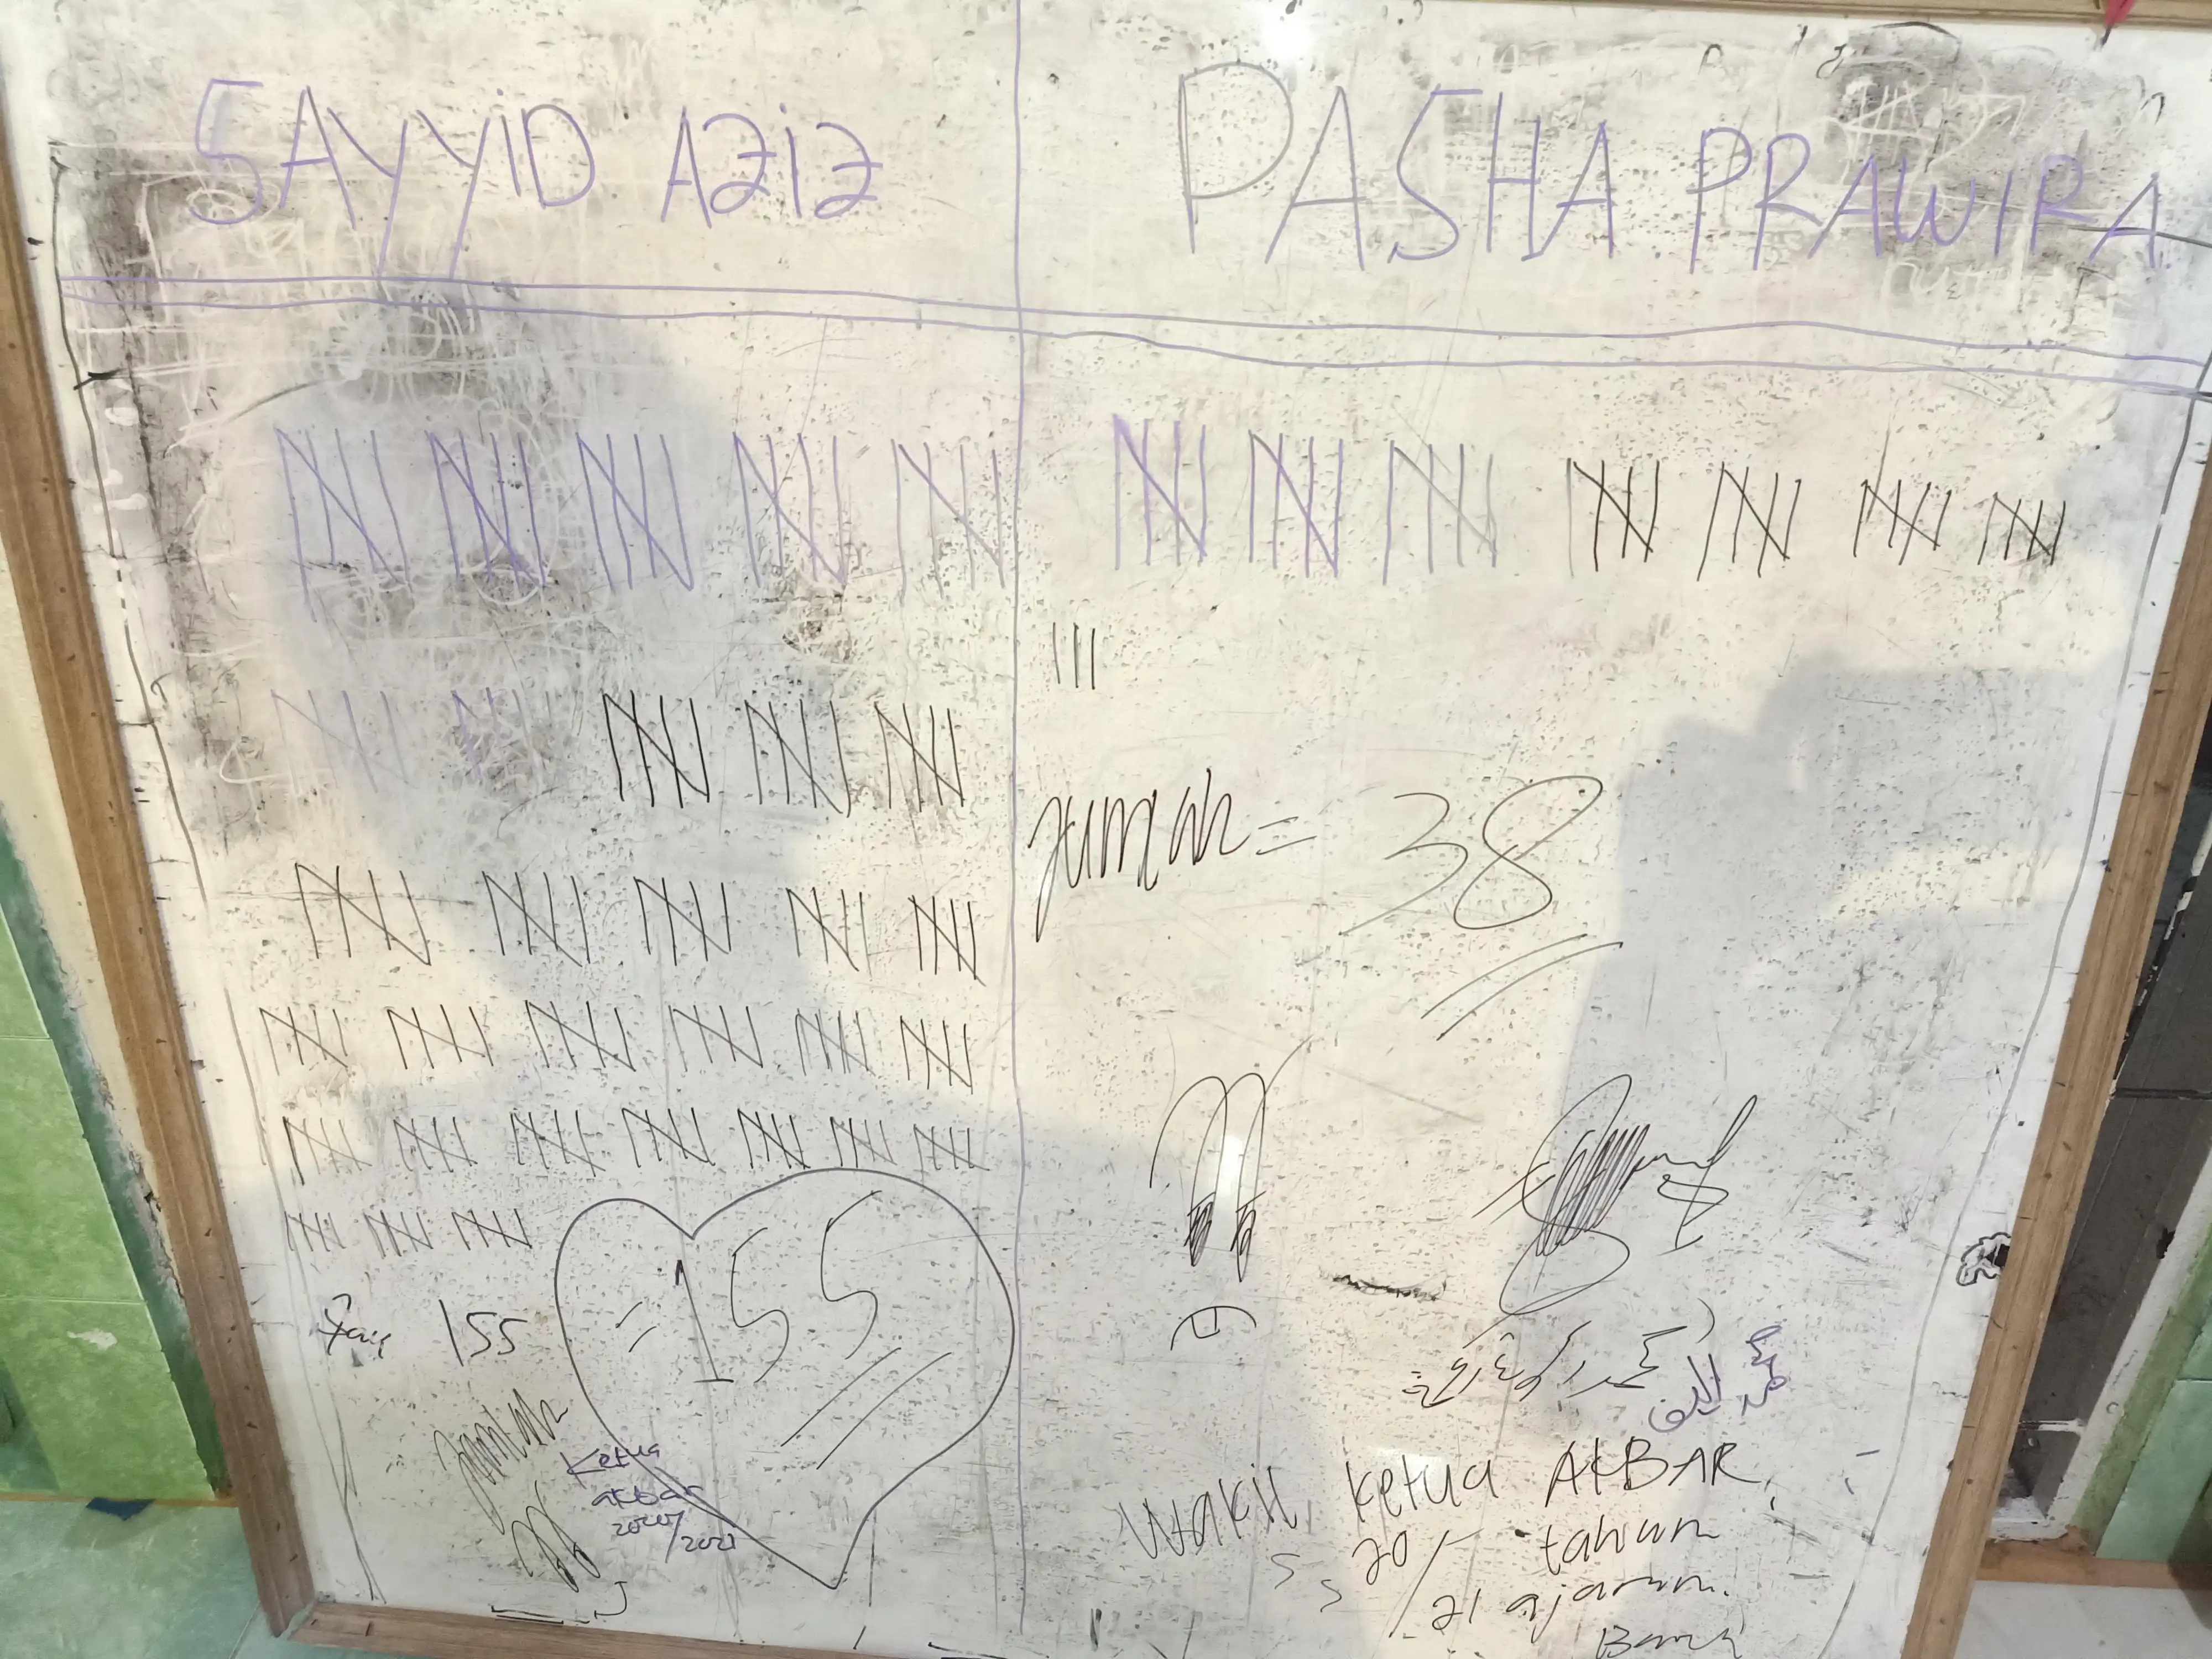 SAYYiD AZiZ
PASHA PRAWIRA
Jumlah = 38
155
= 155
Jumlah
Ketua
akbar
2020/
/2021
Wakil Ketua AKBAR
20/ tahun
21 ajaran.